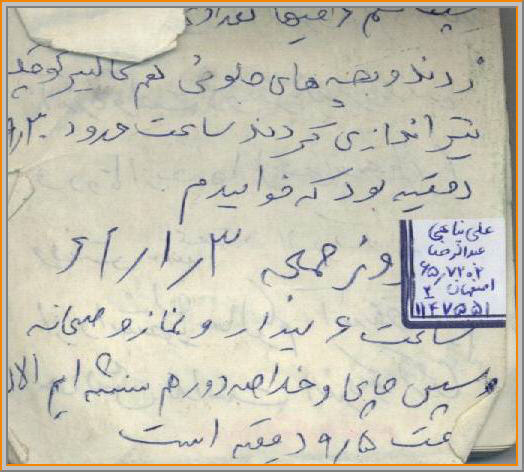 زدند و بچه های جلوئی هم کالیبر کوچک
تیر اندازی کردند ساعت حدود
دقیقه بود که خوابیدم
روز جمعه
ساعت ۶ بیدار و نماز و صبحانه
سپس چای و خلاصه دور هم نشسته ایم الان
ساعت ۹/۵ دقیقه است
علی نتاجی
عبدالرضا
۶۵٫۷۲۰۲
اصفهان ۲
۱۱۴۷۵۵۱